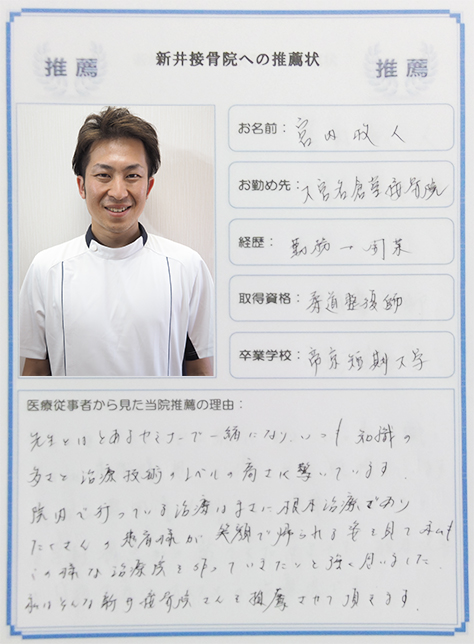 新井接骨院への推薦状
推薦
推薦
お名前：宮内 牧人
お勤め先：大宮名倉堂接骨院
経歴：勤務→開業
取得資格：柔道整復師
卒業学校：帝京短期大学
医療従事者から見た当院推薦の理由：
先生とはとあるセミナーで一緒になり、いつも 知識の
多さと治療技術のレベルの高さに驚いています。
院内で行っている治療はまさに根本治療であり
たくさんの患者様が 笑顔で帰られる姿を見て 私も
この様な治療院を作っていきたいと強く思いました。
私はそんな新井接骨院さんを推薦させて頂きます。